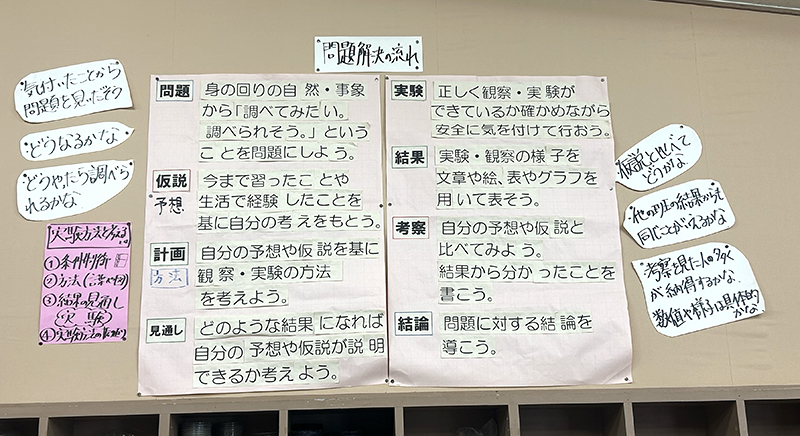 問題解決の流れ
気付いたことから
問題を見いだそう
どうなるかな
どうやったら調べら
れるかな
実験方法を考える
①条件制御
②方法
③結果の見通し
(実験)
問題 身の回りの自然・事象
から「調べてみたい。
調べられそう。」という
ことを問題にしよう。
仮説 今まで習ったことや
予想 生活で経験したことを
基に自分の考えをもとう。
計画 自分の予想や仮説を基に
方法 観察・実験の方法
を考えよう。
見通し どのような結果になれば
自分の予想や仮説が説明
できるか考えよう。
実験 正しく観察・実験が
できているか確かめながら
安全に気を付けて行おう。
結果 実験・観察の様子を
文章や絵、表やグラフを
用いて表そう。
考察 自分の予想や仮説と
比べてみよう。
結果から分かったことを
書こう。
結論 問題に対する結論を
導こう。
仮説と比べて
どうかな
他の班の結果から
同じことがいえるかな
考察を見た人の多く
が納得するかな
数値や様子は具体的
かな